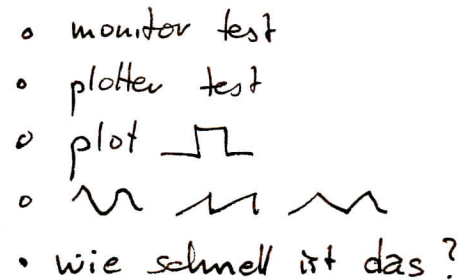 • monitor test
• plotter test
• plot
• wie schnell ist das?